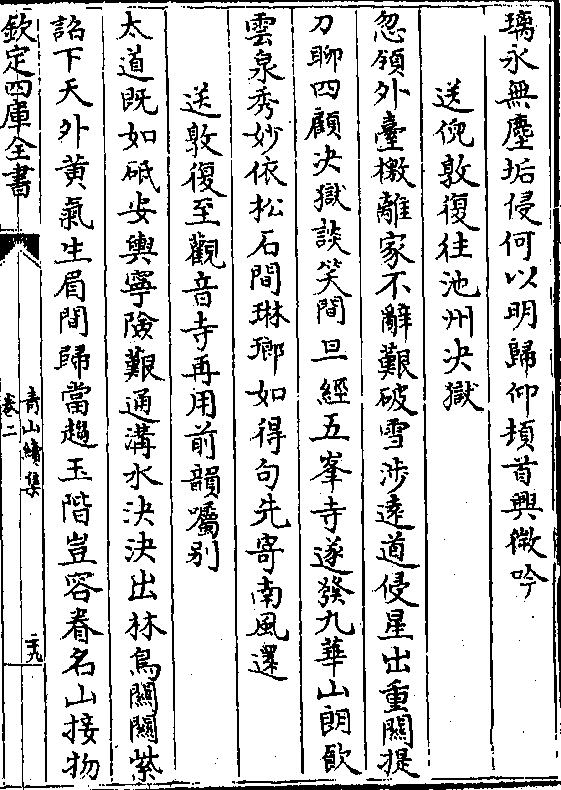 璃永無塵垢侵何以明歸仰頓首興微吟
送倪敦復往池州决獄
忽領外臺檄離家不辭艱破雪涉遠道侵星出重關提
刀聊四顧决獄談笑間旦經五峯寺遂發九華山朗飲
雲泉秀妙依松石間琳瑯如得句先寄南風還
送敦復至觀音寺再用前韻囑别
太道既如砥安輿寧險艱通溝水決決出林鳥關關紫
詔下天外黄氣生眉間歸當趨玉階豈容眷名山接物
欽定四庫全書
青山續集
卷二
二十九